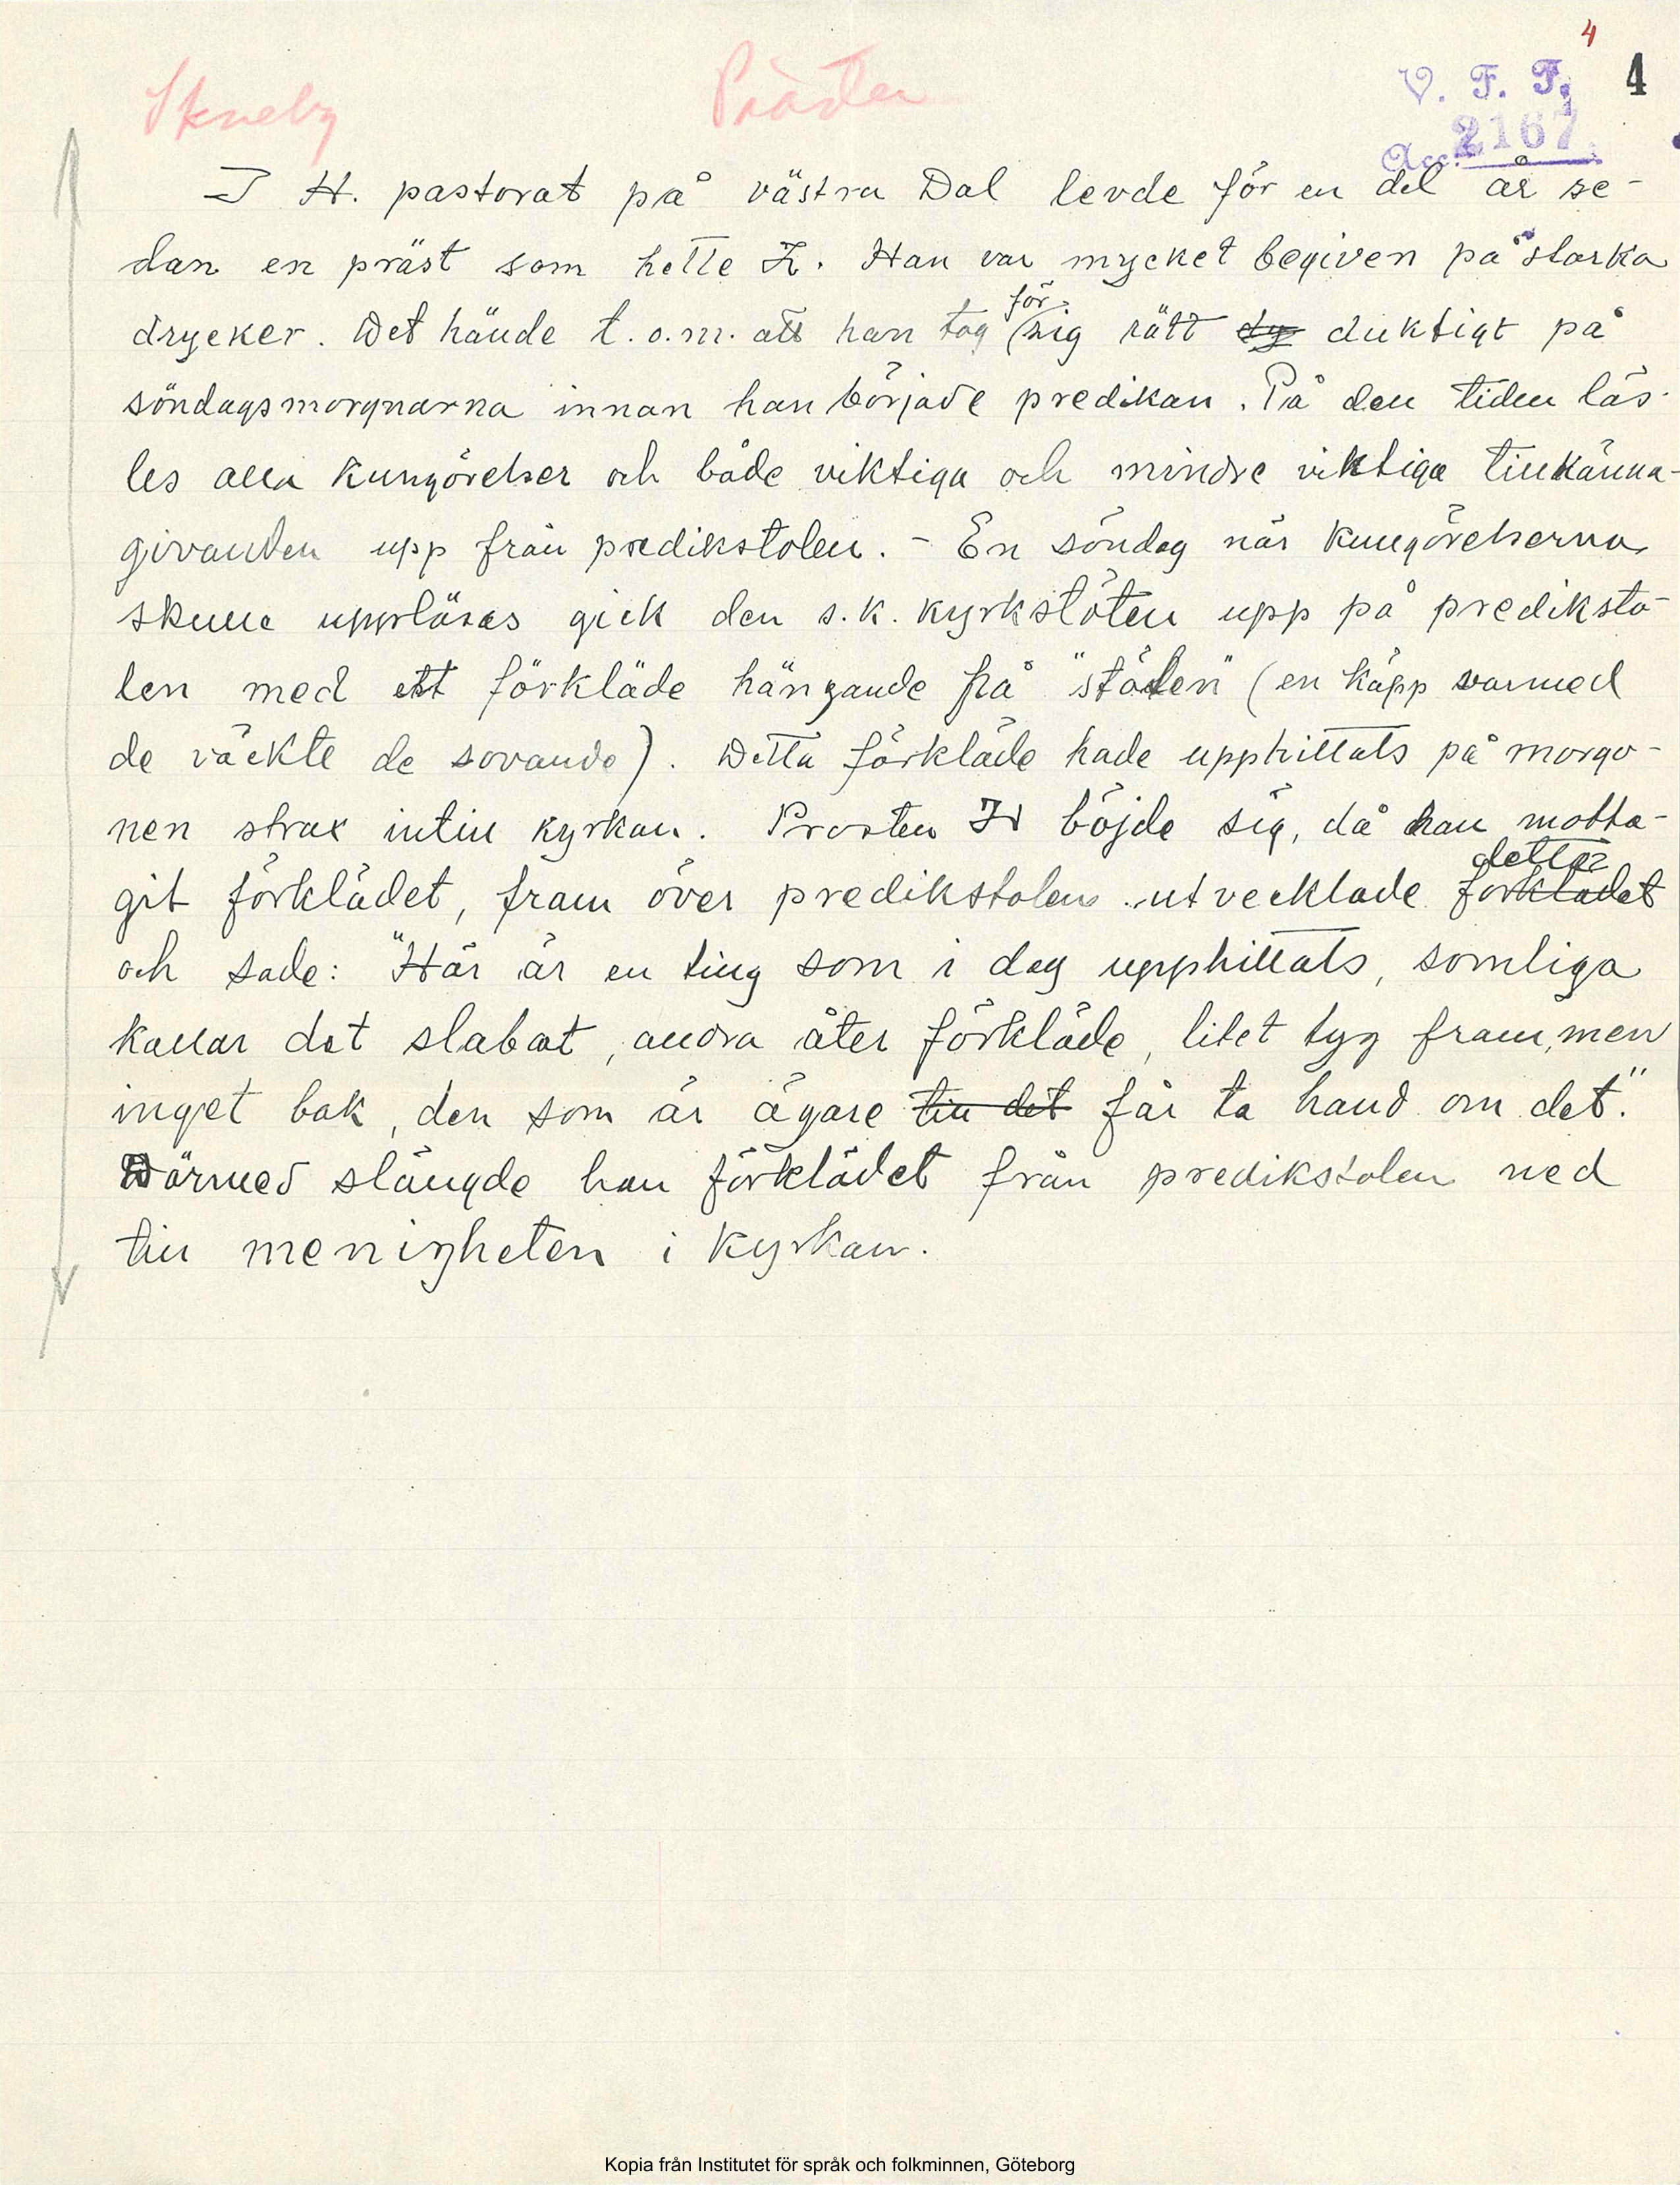 4
V. F. F. 4
Skneby Präster
Acc. 2167.
I H. pastorat på västra Dal levde för en del år se-
dan en präst som hette Z. Han var mycket begiven på starka
drycker. Det hände t.o.m. att han tog för sig rätt duktigt på
söndagsmorgnarna innan han började predikan. På den tiden läs-
tes alla kungörelser och både viktiga och mindre viktiga tillkänna-
givanden upp från predikstolen. - En söndag när kungörelserna
skulle uppläsas gick den s.k. kyrkstöten upp på prediksto-
len med ett förkläde hängande på "stöten" (en käpp varmed
de väckte de sovande). Detta förkläde hade upphittats på morgo-
nen strax intill kyrkan. Prosten böjde sig, då han motta-
git förklädet, fram över predikstolen utvecklade detta förklädet
och sade: "Här är en ting som i dag upphittats, somliga
kallar det slabat, andra åter förkläde, litet tyg fram, men
inget bak, den som är ägare till det får ta hand om det."
Därmed slängde han förklädet från predikstolen ned
till menigheten i kyrkan.
Kopia från Institutet för språk och folkminnen, Göteborg